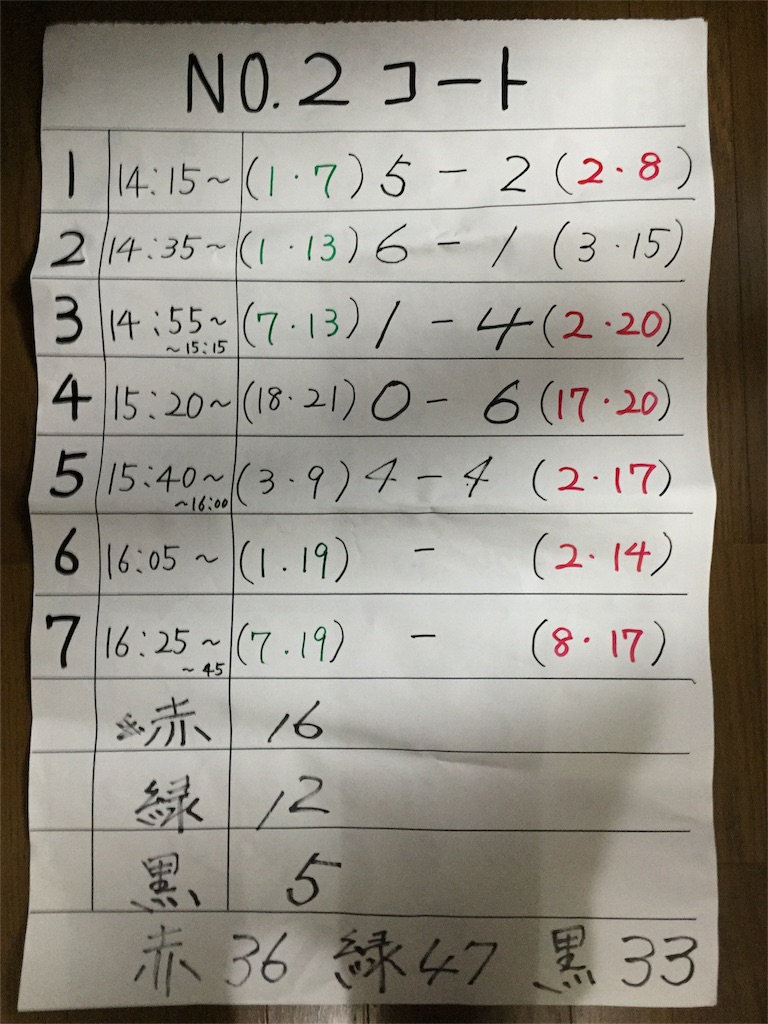 NO.2 コート
1 14:15~ (1・7) 5 - 2 (2・8)
2 14:35~ (1・13) 6 - 1 (3・15)
3 14:55~ ~15:15 (7・13) 1 - 4 (2・20)
4 15:20~ (18・21) 0 - 6 (17・20)
5 15:40~ ~16:00 (3・9) 4 - 4 (2・17)
6 16:05~ (1.19) - (2・14)
7 16:25~ ~45 (7.19) - (8・17)
※赤 16
緑 12
黒 5
赤 36 緑 47 黒 33